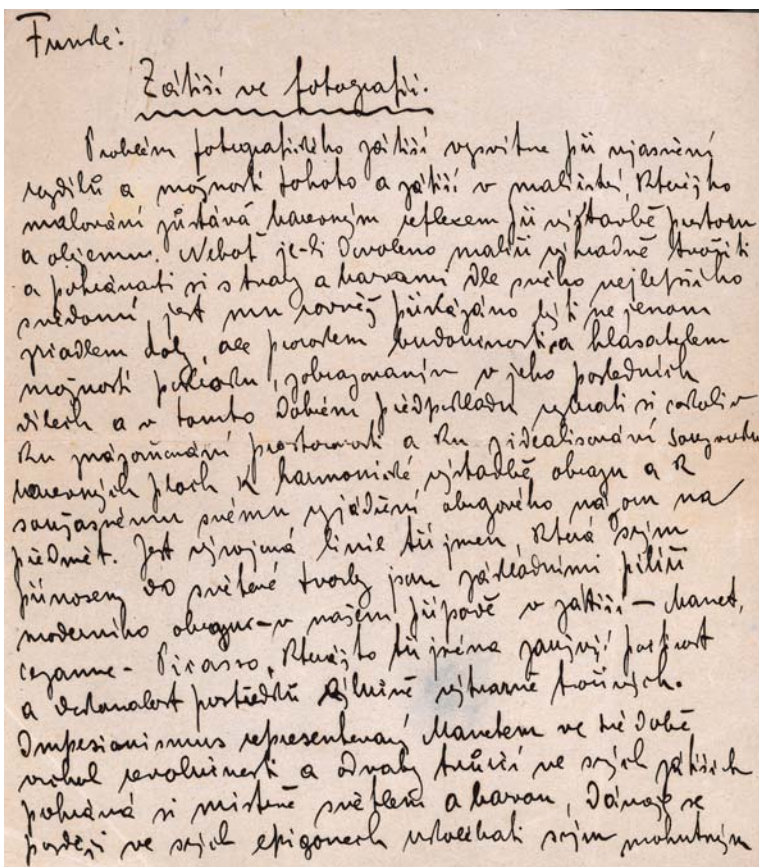 Funke:
Zátiší ve fotografii.
Problém fotografického zátiší vysvitne při ujasnění
rozdílů a možností tohoto a zátiší v malířství, kteréžto
malování zůstává barevným reflexem při výstavbě prostoru
a objemu. Neboť je-li dovoleno malíři výhradně tvořiti
a pohrávati si s tvary a barvami dle svého nejlepšího
svědomí, jest mu rovněž přikázáno býti ne jenom
zrcadlem doby, ale prorokem budoucnosti a hlasatelem
možností pokroku, zobrazovaným v jeho posledních
dílech a v tomto dobrém předpokladu vybrati si cokoliv
ku znázorňování prostorovosti a ku zidealisování souzvuku
barevných ploch k harmonické výstavbě obrazu a k
současnému svému vyjádření obrazového názoru na
předmět. Jest vývojová linie tří jmen, která svým
přínosem do světové tvorby jsou základními pilíři
moderního obrazu – v našem případě v zátiší – Manet,
Cezanne – Picasso, kterážto tři jména
a dokonalost prostředků výtvarně tvořivých.
Impresionismus representovaný Manetem ve své době
vrchol revolučnosti a odvahy tvůrčí ve svých zátiších
pohrává si mistrně světlem a barvou, dávaje se
později ve svých epigonech svým mohutným